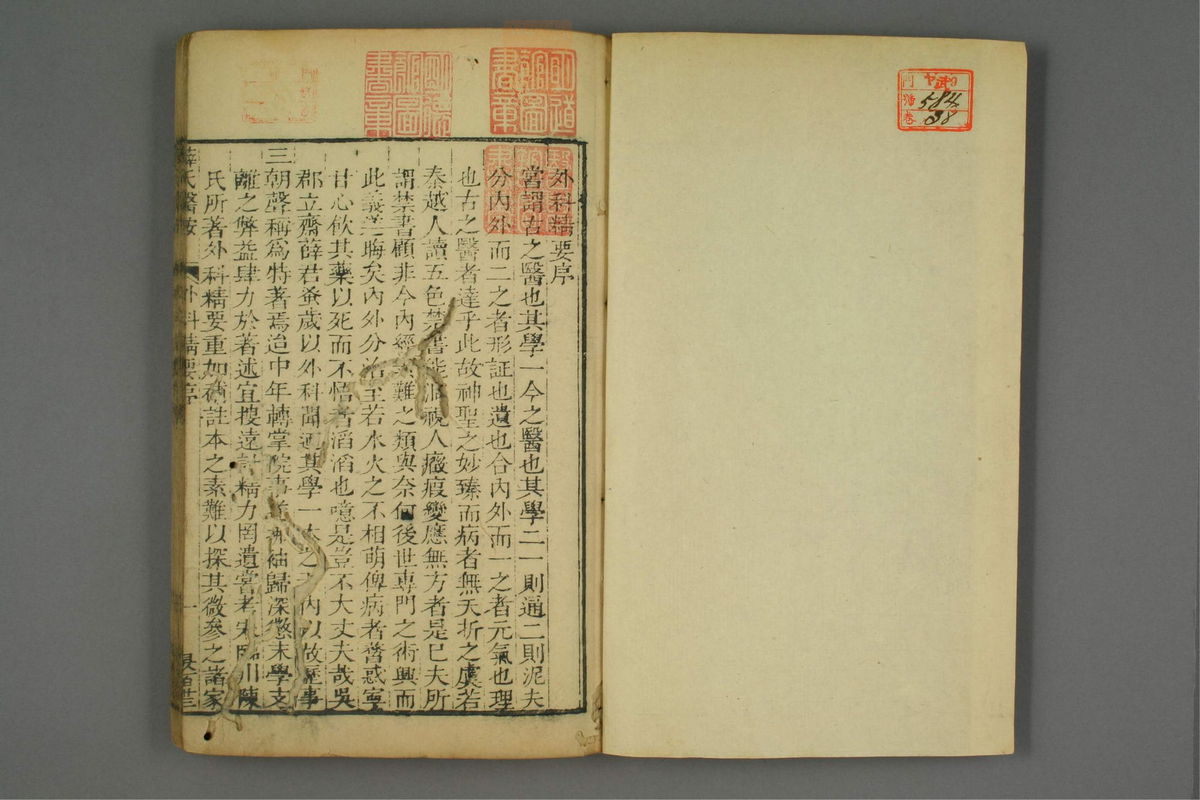 外科精要序
嘗謂古之醫也其學一今之醫也其學二一則通二則泥夫
分內外而二之者形証也遺也合內外而一之者元氣也理
也古之醫者達乎此故神聖之妙臻而病者無夭折之虞若
秦越人讀五色禁書能洞視人癥瘕變應無方者是已夫所
謂禁書顧非今內經難之類與奈何後世專門之術興而
此義晦矣內外分治至若水火之不相萌俾病者瞀惑寧
甘心飲其藥以死而不悟者滔滔也噫是豈不大丈夫哉吳
郡立齋薛君蚤歲以外科聞其學一本之內以故歷事
三朝聲稱為特著焉迨中年轉掌院事袖歸深懲末學支
離之弊益肆力於著述宜搜遠討精力罔遺嘗考宋臨川陳
氏所著外科精要重加註本之素難以探其微參之諸家
薛氏醫按
外科精要序
一
明道館圖書章
明德館圖書章
584
38